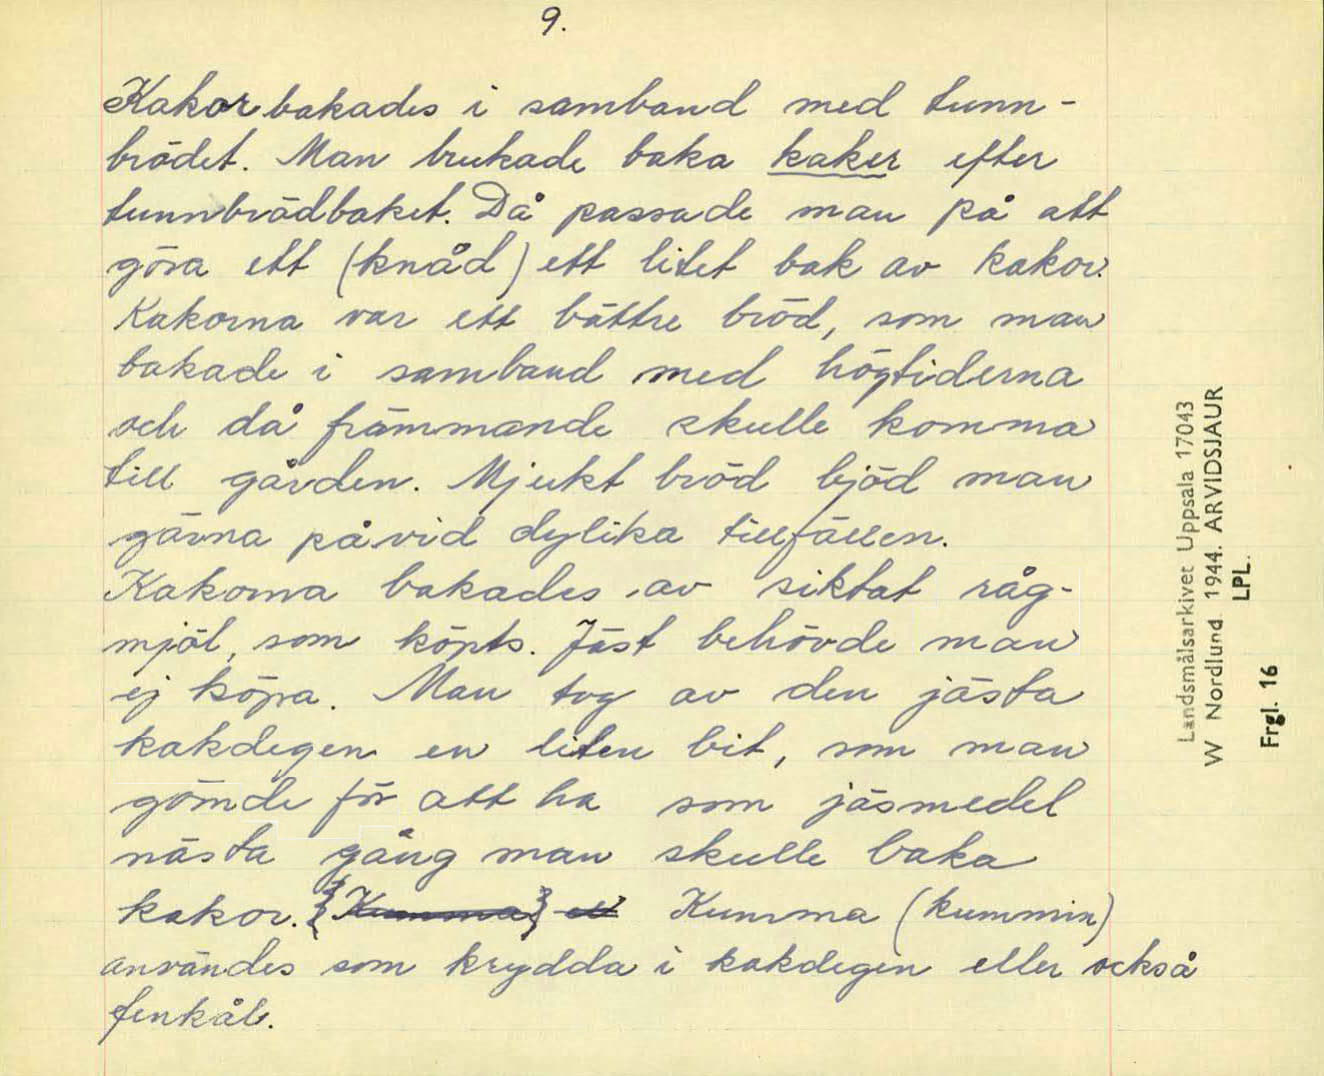 9.
Kakor bakades i samband med tunn-
brödet. Man brukade baka kaker efter
tunnbrödbaket. Då passade man på att
göra ett (knåd) ett litet bak av kakor.
Kakorna var ett bättre bröd, som man
bakade i samband med högtiderna
och då främmande skulle komma
till gården. Mjukt bröd bjöd man
gärna på vid dylika tillfällen.
Kakorna bakades av siktat råg-
mjöl, som köpts. Jäst behövde man
ej köpa. Man tog av den jästa
kakdegen en liten bit, som man
gömde för att ha som jäsmedel
nästa gång man skulle baka
kakor. {Kumma} ett Kumma (kummin)
användes som krydda i kakdegen eller också
fenkål.
Landsmålsarkivet Uppsala 17043
W Nordlund. 1944. ARVIDSJAUR
LPL.
Frgl. 16